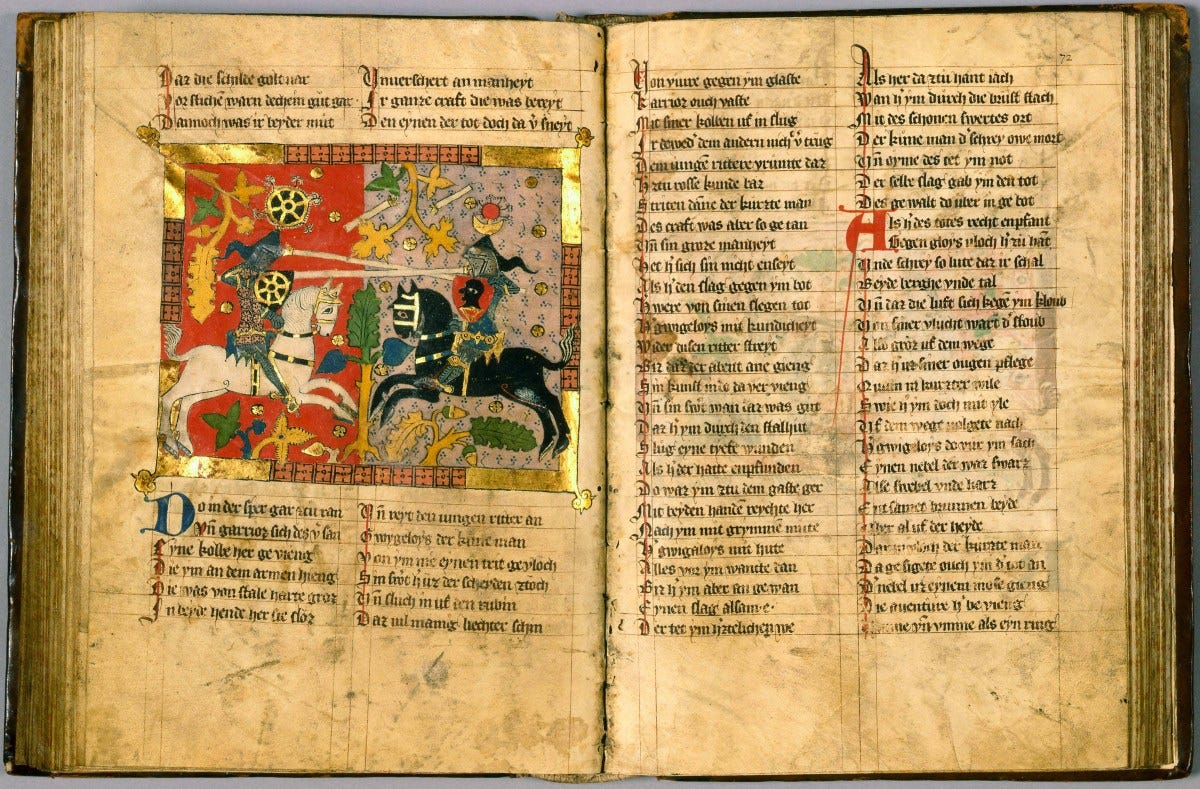 Daz die schilde golt var
Vor stiche warn dechein gut gar
Dannoch was ir beyder mut
Vnuerschert an manheyt
Ir ganze craft die was bereyt
Den eynen der tot doch da v̄ sneyt
Do in der sper gar ztu ran
garrioz sich des v̄ san
Eyne kolbe her ge vieng
Die ym an dem armen hieng
Die was von stale harte groz
In beyde hende her sie sloz
Vn̄ reyt den iungen ritter an
Gwygeloys der kune man
Von ym me eynen trit ge vloch
Sin swert h̓ uz der scheyden ztoch
Vn̄ sluch in uf den rubin
Daz uil manig liechter schin
72
Von vure gegen ym glaste
Karrioz ouch vaste
Mit siner kolben uf in slug
Ir dewed̓ dem andern nicht v̄ trug
Dem iungē rittere vrumte daz
H̓ ztu rosse kunde baz
Striten dāne der kurzte man
Des craft was aber so ge tan
Vn̄ sin groze manheyt
Het h̓ sich sin nicht enseyt
Als h̓ den slag gegen ym bot
H̓ were von sinen slegen tot
H̓ gwigeloys mit kundicheyt
Wider disen ritter streyt
Biz daz der abent ane gieng
Sin kunst in̓s da ver vieng
Vn̄ sin swt̓ wan daz was gut
Daz h̓ ym durch den stalhut
Slug eyne tyefe wunden
Als h̓ der hatte enpfunden
Do waz ym ztu dem gaste ger
Mit beyden handē reychte her
Nach ym mit grymmem mute
H̓ gwigaloys mit hute
Alles vor ym wancte dan
Biz h̓ ym aber an ge wan
Eynen slag alsam e
Der tet ym h̓tzelichen we
Als her da ztu hant iach
Wan h̓ ym durch die brust stach
Mit des schonen swertes ort
Der kune man d̓ schrey owe mort
Vn̄ oyme des tet ym not
Der selbe slag gab ym den tot
Des ge walt do uber in ge bot
Als h̓ des totes recht enpfant
Gegen gloys vloch h̓ zu hāt
Vnde schrey so lute daz ir schal
Beyde berghe vnde tal
Vn̄ daz die luft sich kegē ym kloub
Von siner vlucht wart d̓ stoub
Also groz uf dem wege
Daz h̓ uz siner ougen pflege
Quam in kurzter wile
Swie h̓ ym doch mit yle
Vf dem wege volgete nach
H̓ gwigeloys do vur ym sach
Eynen nebel der waz swarz
Alse swebel vnde harz
Entsamet brunnen beyde
Vber al uf der heyde
kurzte man
Da ge sigete ouch ym d̓ tot an
D̓ nebel uz eynem mose gieng
Die auenture h̓ be vieng
vn̄ ymme als eyn ring